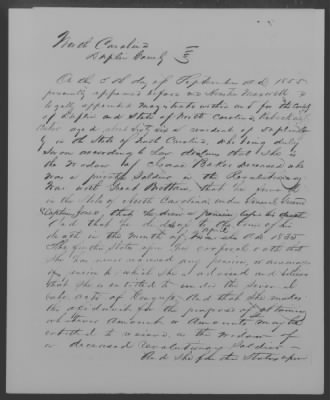 North Carolina
Duplin County
On the 5th day of September A.D. 1855
personally appeared before me
legally appointed magistrate within and for the County
of Duplin and State of North Carolina
Baker aged about sixty six a resident of
in the State of North Carolina, who being duly
sworn according to law declares that she is
the widow of Baker deceased who
was a private Soldier in the Revolutionary
War with Great Brittain, that he
in the State of North Carolina under General Green
that he drew a pension before his death
that in the
in the month of A.D. 1835
She further states upon her corporal oath that
she has never received any pension, or arrearage
pension to which she is advised and believes
that she is entitled to under the several
acts of Congress. And that she makes
this for the purpose of obtaining
whatever amount or amounts may be
entitled to receive as the widow of
a deceased Revolutionary Soldier
And she further States upon